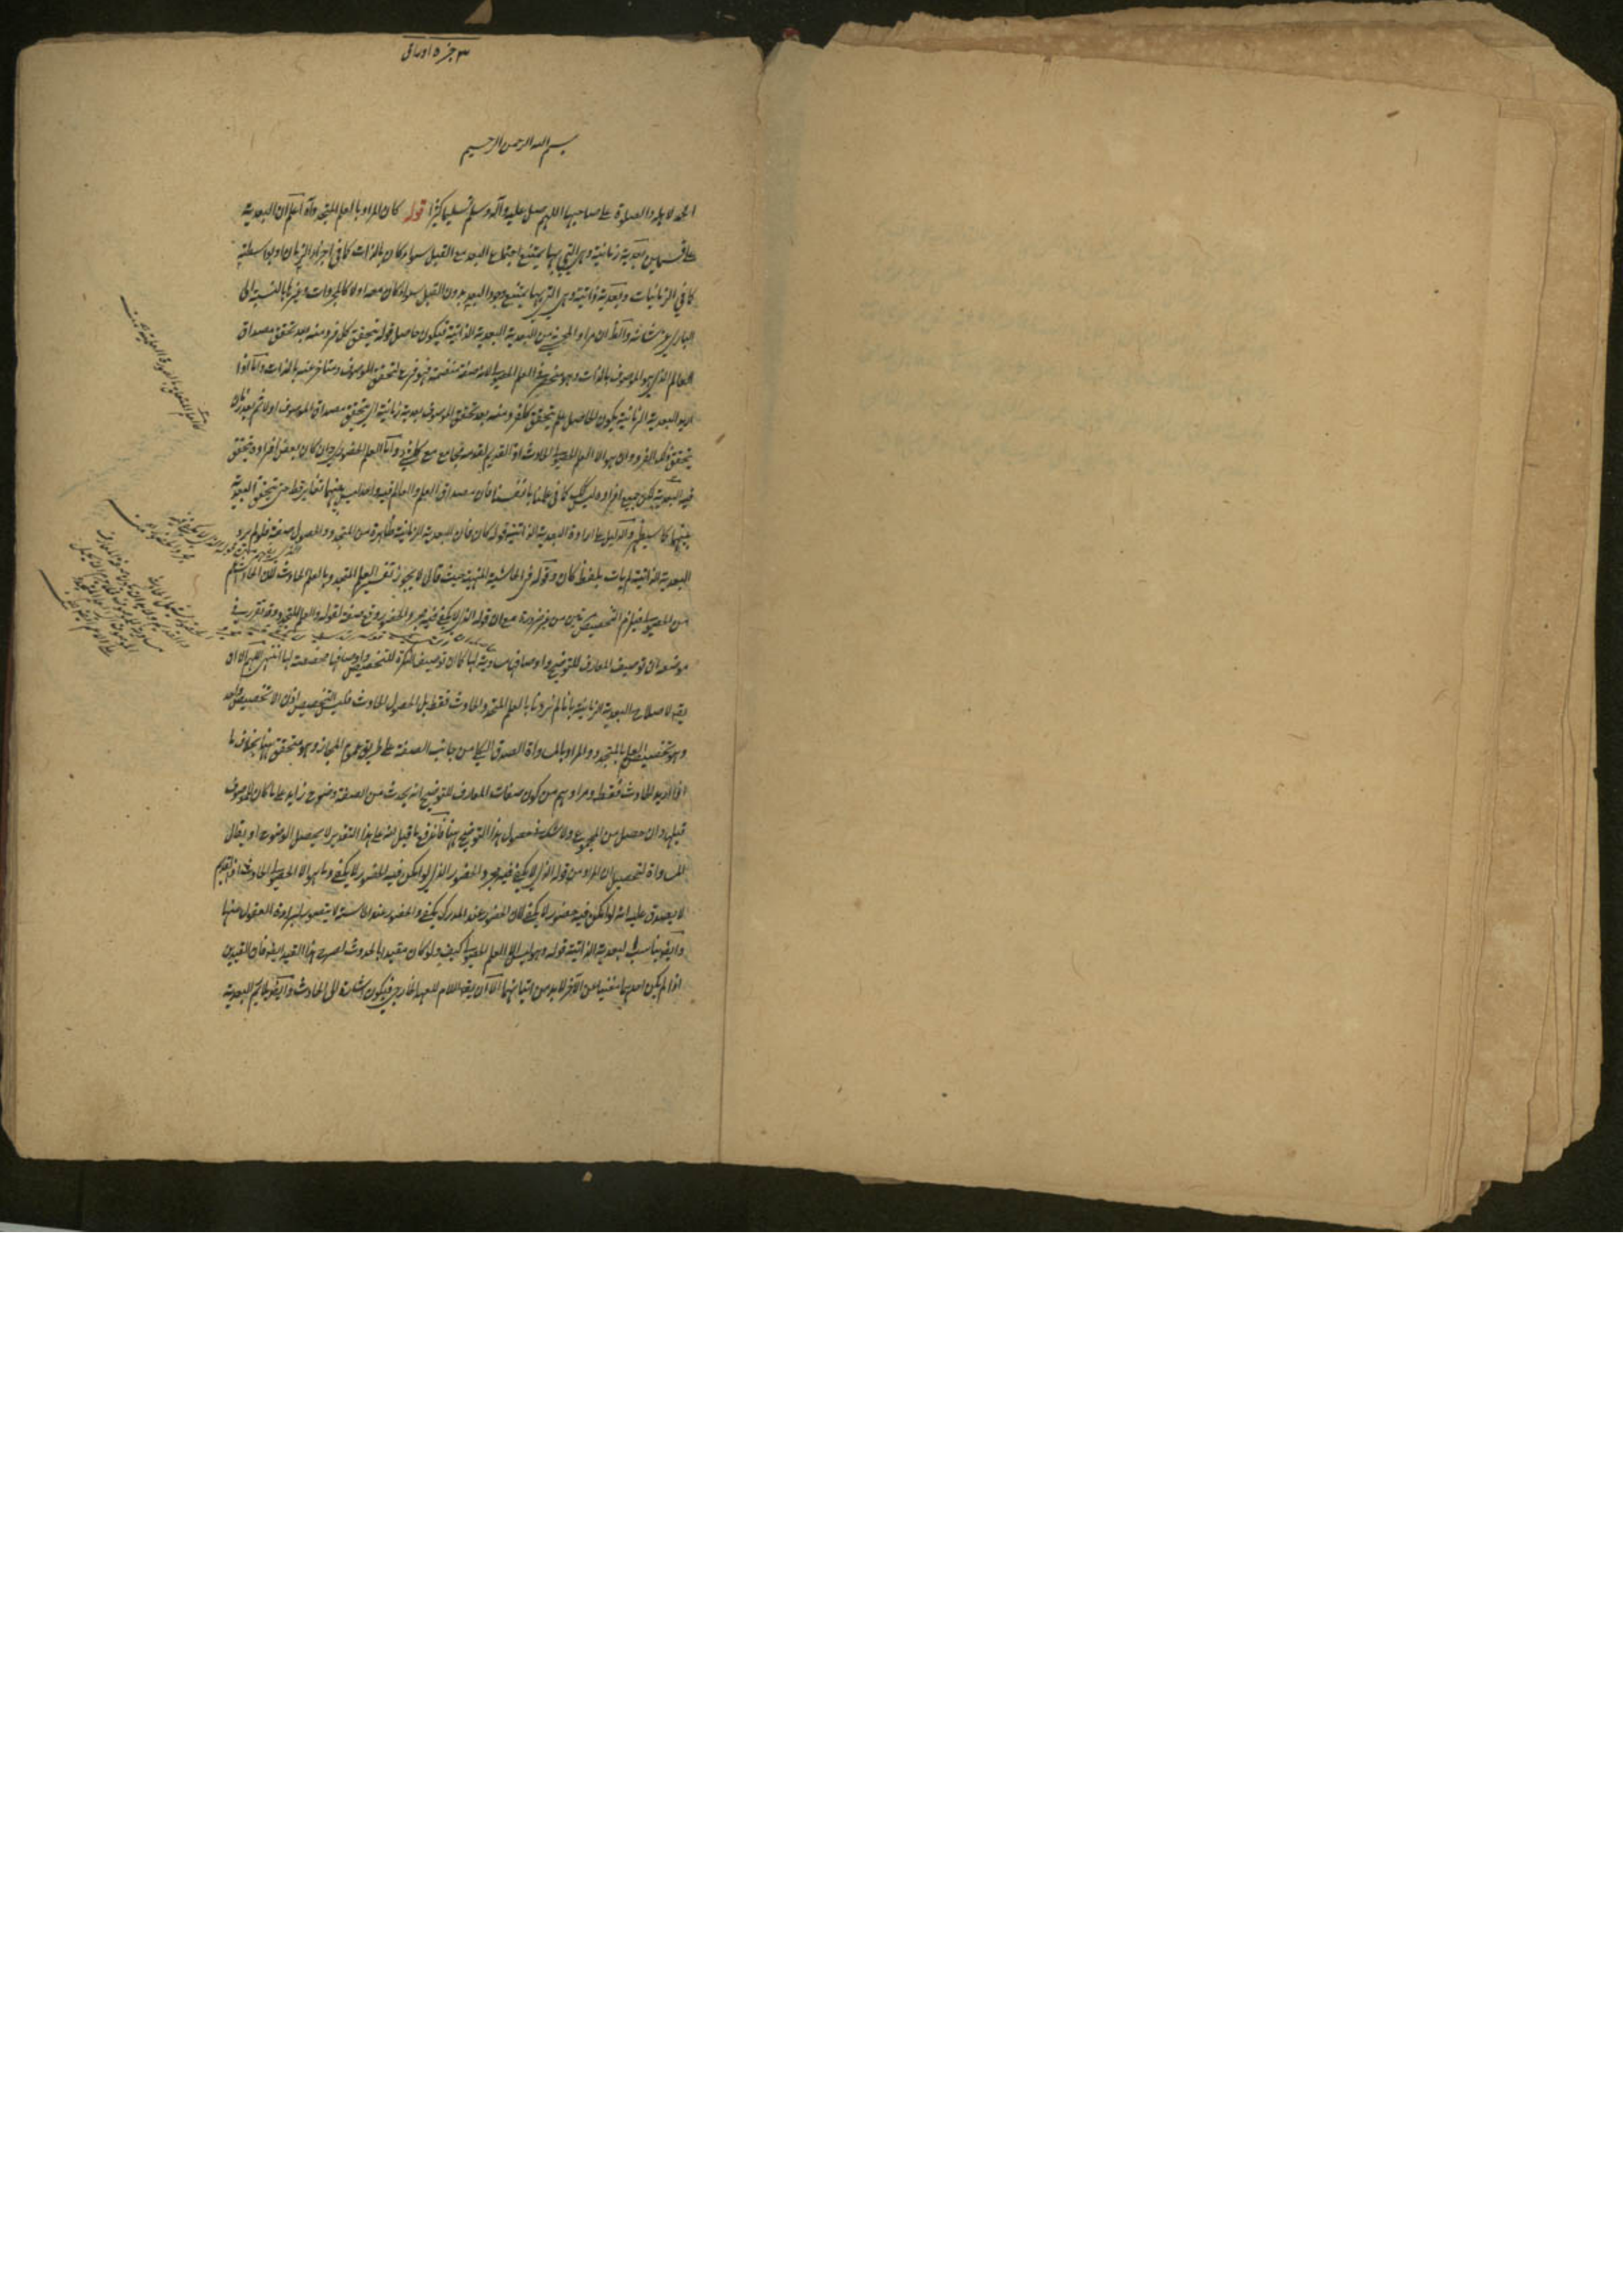 ٣ جز ٥ اوراق
بسم الله الرحمن الرحيم
الحمد لاهله والصلوة على صاحبها اللهم صل عليه وآله وسلم تسليما كثيرا قوله كان المراد بالعلم المتجدد آه اعلم ان البعدية
على قسمين بعدية زمانية وهي التي بها يمتنع اجتماع البعد مع القبل سواء كان بالذات كما في اجزاء الزمان او بواسطته
كما في الزمانيات وبعدية ذاتية وهي التي بها يمتنع وجود البعد بدون القبل سواء كان معه اولا كالمجردات وغيرها بالنسبة الى
الباري عز شانه والظ ان مراد المحشي من البعدية البعدية الذاتية فيكون حاصل قوله يتحقق كل فرد منه بعد تحقق مصداق
العالم الذي هو الموصوف بالذات وهو منحصر في العلم الحصولي لانه صفة منضمة فهو فرع لتحقق الموصوف ومتاخر عنه بالذات واما اذا
اريد البعدية الزمانية يكون الحاصل علم يتحقق كل فرد منه بعد تحقق الموصوف بعدية زمانية اي يتحقق مصداق الموصوف اولا ثم بعد زمان
يتحقق ذلك الفرد وان هو الا العلم الحصولي الحادث اذ القديم لقدمه يجامع مع كل شئ واما العلم الحضوري وان كان بعض افراده يتحقق
فيه البعدية لكن جميع افراده ليس كك كما في علمنا بانفسنا فان مصداق العلم والعالم فيه واحد ليس بينهما تغاير قط حتى يتحقق البعدية
بينهما كما سيظهر والدليل على ارادة البعدية الذاتية قوله كان فان البعدية الزمانية ظاهرة من المتجدد والحصولي صفة فلو لم يرد
البعدية الذاتية لم يات بلفظ كان وقوله في الحاشية المنهية حيث قال لا يجوز تفسير العلم المتجدد بالعلم الحادث لان الحادث اعم
من الحصولي فيلزم التخصيص مرتين من غير ضرورة مع ان قوله الذي لا يكفي فيه مجرد الحضور وقع صفة لقوله والعلم المتجدد وقد تقرر في
موضعه ان توصيف المعارف للتوضيح واوصافها مساوية لها كما ان توصيف النكرة للتخصيص واوصافها مخصصة لها انتهى اللهم الا ان
يقه لاصلاح البعدية الزمانية بانا لم نرد بالعلم المتجدد الحادث فقط بل الحصولي الحادث فليس التخصيص اذن الا تخصيص واحد
وهو تخصيص العلم بالمتجدد والمراد بالمساواة الصدق الكلي من جانب الصفة على طريق عموم المجاز وهو متحقق ههنا بخلاف ما
اذا اريد الحادث فقط ومرادهم من كون صفات المعارف للتوضيح انه يحدث من الصفة وضوح زايد على ما كان للموصوف
قبلها وان حصل من المجموع ولا شك في حصول هذا التوضيح ههنا فاندفع ما قيل انه على هذا التقدير لا يحصل الوضوح او يقال
المساواة لتحصيل ان المراد من قوله الذي لا يكفي فيه مجرد الحضور الذي لو امكن فيه الحضور لا يكفي وما هو الا الحصولي الحادث اذ القديم
لا يصدق عليه انه لو امكن فيه حضور لا يكفي لان الحضور عند المدرك يكفي والحضور عند الحاسة لا يتصور لبراءة العقول عنها
وايضا يناسب البعدية الذاتية قوله وهو ليس الا العلم الحصولي كيف ولو كان مقيدا بالحدوث لصرح بهذا القيد ايضا فان القيدين
اذا لم يكن احدهما مغنيا عن الآخر لا بد من اتيانهما الا ان يقه اللام للعهد الخارجي فيكون اشارة الى الحادث وايضا يلايم البعدية